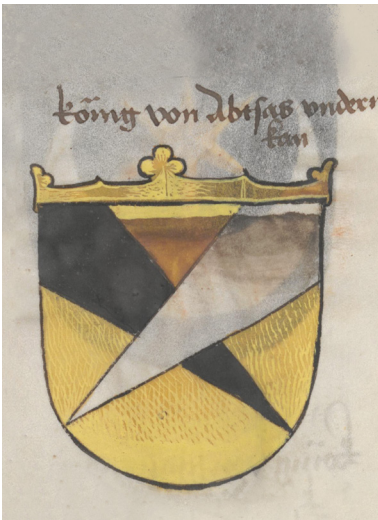 könig von Abtsas vndern
kan